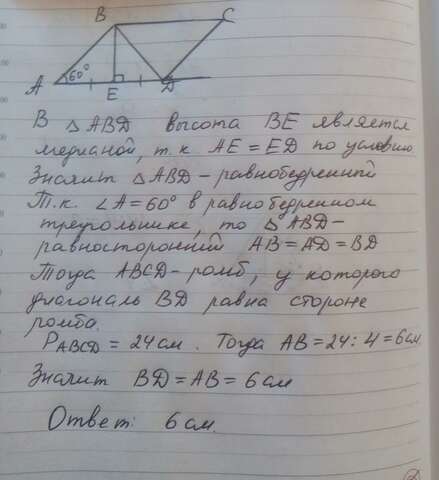 B C
A 60° E D
В △ABD высота BE является
медианой, т.к AE = ED по условию
Значит △ABD - равнобедренный
Т.к. ∠A = 60° в равнобедренном
треугольнике, то △ABD -
равносторонний AB = AD = BD
Тогда ABCD - ромб, у которого
диагональ BD равна стороне
ромба.
P ABCD = 24 см. Тогда AB = 24 : 4 = 6 см
Значит BD = AB = 6 см
Ответ: 6 см.